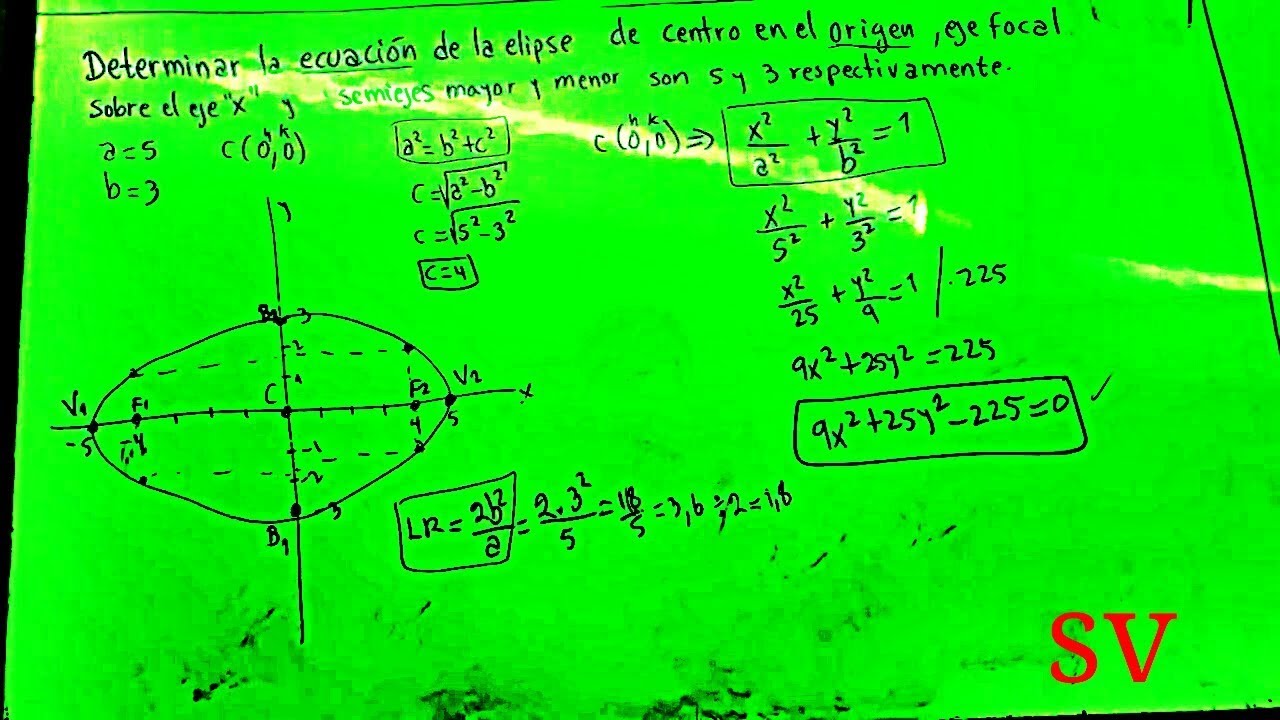 Determinar la ecuación de la elipse de centro en el origen, eje focal
sobre el eje "x" y semiejes mayor y menor son 5 y 3 respectivamente.
a=5
b=3
C(0,0)
h k
a²=b²+c²
c=√a²-b²
c=√5²-3²
c=4
h k
C(0,0)⇒ x²/a² + y²/b² = 1
x²/5² + y²/3² = 1
x²/25 + y²/9 = 1 | ·225
9x²+25y²=225
9x²+25y²-225=0 ✓
y
B2 3
2
1
V1 F1 C F2 V2 x
-5 4 5
-1
-2
B1
LR = 2b²/a = 2·3²/5 = 18/5 = 3,6 ÷2 = 1,8
SV